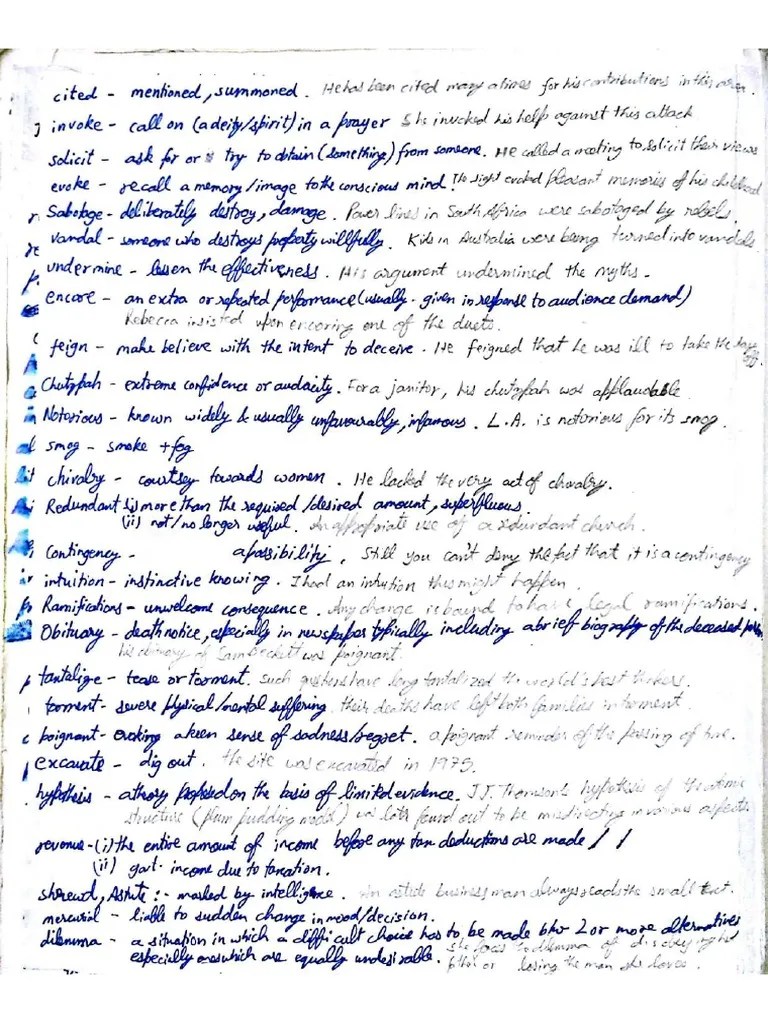 cited - mentioned, summoned. He has been cited many a times for his contributions in this area.
invoke - call on (a deity/spirit) in a prayer She invoked his help against this attack
solicit - ask for or try to obtain (something) from someone. He called a meeting to solicit their views
evoke - recall a memory/image to the conscious mind! The sight evoked pleasant memories of his childhood
Sabotage - deliberately destroy, damage. Power lines in South Africa were sabotaged by rebels.
vandal - someone who destroys property willfully. Kids in Australia were being turned into vandals
undermine - lessen the effectiveness. His argument undermined the myths -
encore - an extra or repeated performance (usually given in response to audience demand)
Rebecca insisted upon encoring one of the duets.
feign - make believe with the intent to deceive. He feigned that he was ill to take the day
off.
Chutzpah - extreme confidence or audacity. For a janitor, his chutzpah was applaudable
Notorious - known widely & usually unfavourably, infamous. L.A. is notorious for its smog.
smog - smoke + fog
chivalry - courtsey towards women. He lacked the very act of chivalry.
Redundant (i) more than the required/desired amount, superfluous.
(ii) not/no longer useful. An appropriate use of a redundant church.
Contingency - a possibility. Still you can't deny the fact that it is a contingency
intuition - instinctive knowing. I had an intuition this might happen.
Ramifications - unwelcome consequence. Any change is bound to have legal ramifications.
Obituary - death notice, especially in newspaper typically including a brief biography of the deceased
his obituary of Sam Beckett was poignant.
tantalize - tease or torment. Such questions have long tantalized the world's best thinkers.
torment - severe physical/mental suffering. their deaths have left both families in torment.
poignant - evoking a keen sense of sadness/regret. a poignant reminder of the passing of time.
excavate - dig out. the site was excavated in 1975.
hypothesis - a theory proposed on the basis of limited evidence. J.J. Thomson's hypothesis of the atomic
structure (plum pudding model) was later found out to be misdirecting in various aspects.
revenue - (i) the entire amount of income before any tax deductions are made //
(ii) govt - income due to taxation.
shrewd, Astute :- marked by intelligence. An astute businessman always reads the small text.
mercurial - liable to sudden change in mood/decision.
dilemma - a situation in which a difficult choice has to be made btw 2 or more alternatives
especially ones which are equally undesirable. She faces the dilemma of disobeying her
or losing the man she loves.